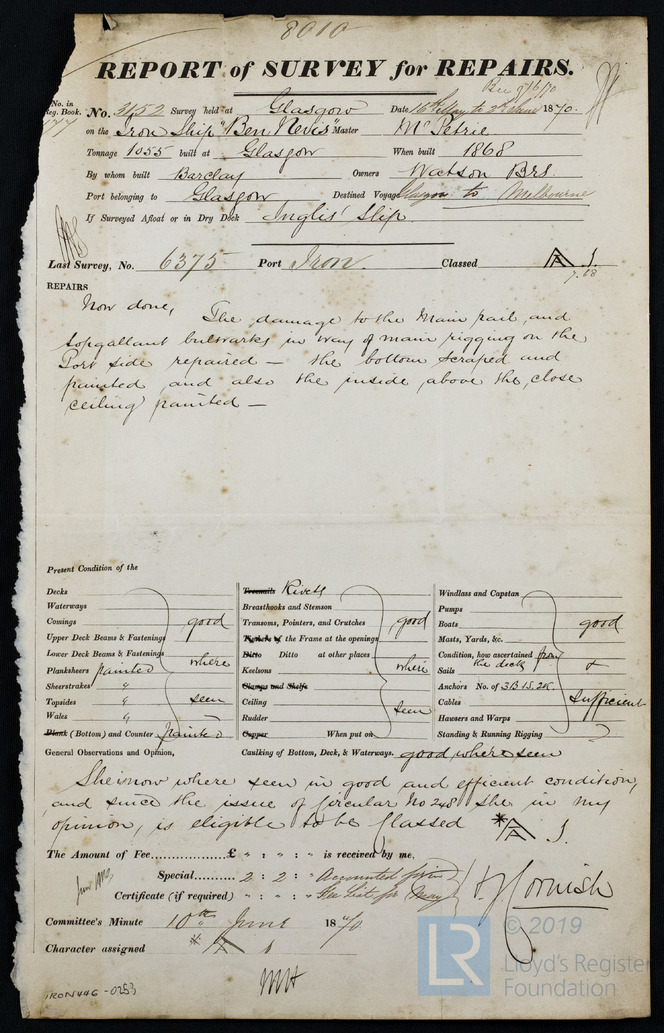 8010
REPORT of SURVEY for REPAIRS.
Rec 9/6/70
No. in Reg. Book.
No. 3152 Survey held at Glasgow Date 16th May to 3rd June 1870.
on the Iron Ship "Ben Nevis" Master McPetrie
Tonnage 1055 built at Glasgow When built 1868
By whom built Barclay Owners Watson Brs
Port belonging to Glasgow Destined Voyage Glasgow to Melbourne
If Surveyed Afloat or in Dry Dock Inglis' Slip
Last Survey, No. 6375 Port Iron. Classed A 1.
7.68
REPAIRS
Now done, The damage to the Main rail, and
topgallant bulwarks in way of main rigging on the
Port side repaired — the bottom scraped and
painted and also the inside above the close
ceiling painted —
Present Condition of the
Decks
Waterways
Comings good
Upper Deck Beams & Fastenings
Lower Deck Beams & Fastenings where
Planksheers painted
Sheerstrakes "
Topsides " seen
Wales "
Plank (Bottom) and Counter painted
Treenails Rivets
Breasthooks and Stemson
Transoms, Pointers, and Crutches good
Timbers of the Frame at the openings
Ditto Ditto at other places
Keelsons where
Clamps and Shelfs
Ceiling
Rudder seen
Copper When put on
Windlass and Capstan
Pumps
Boats good
Masts, Yards, &c.
Condition, how ascertained from
Sails the deck &
Anchors No. of 3B.1S.2K.
Cables Sufficient
Hawsers and Warps
Standing & Running Rigging
General Observations and Opinion, Caulking of Bottom, Deck, & Waterways. good where seen
She is now where seen in good and efficient condition,
and since the issue of Circular No 248 she in my
opinion, is eligible to be Classed * A 1.
The Amount of Fee £ " : " : " is received by me,
Special 2 : 2 : " Accounted for in
Certificate (if required) " : " : " Fee List for May
H J Cornish
Committee's Minute 10th June 1870.
Character assigned * A 1
MH
IRON446-0253
© 2019
LR
Lloyd's Register
Foundation